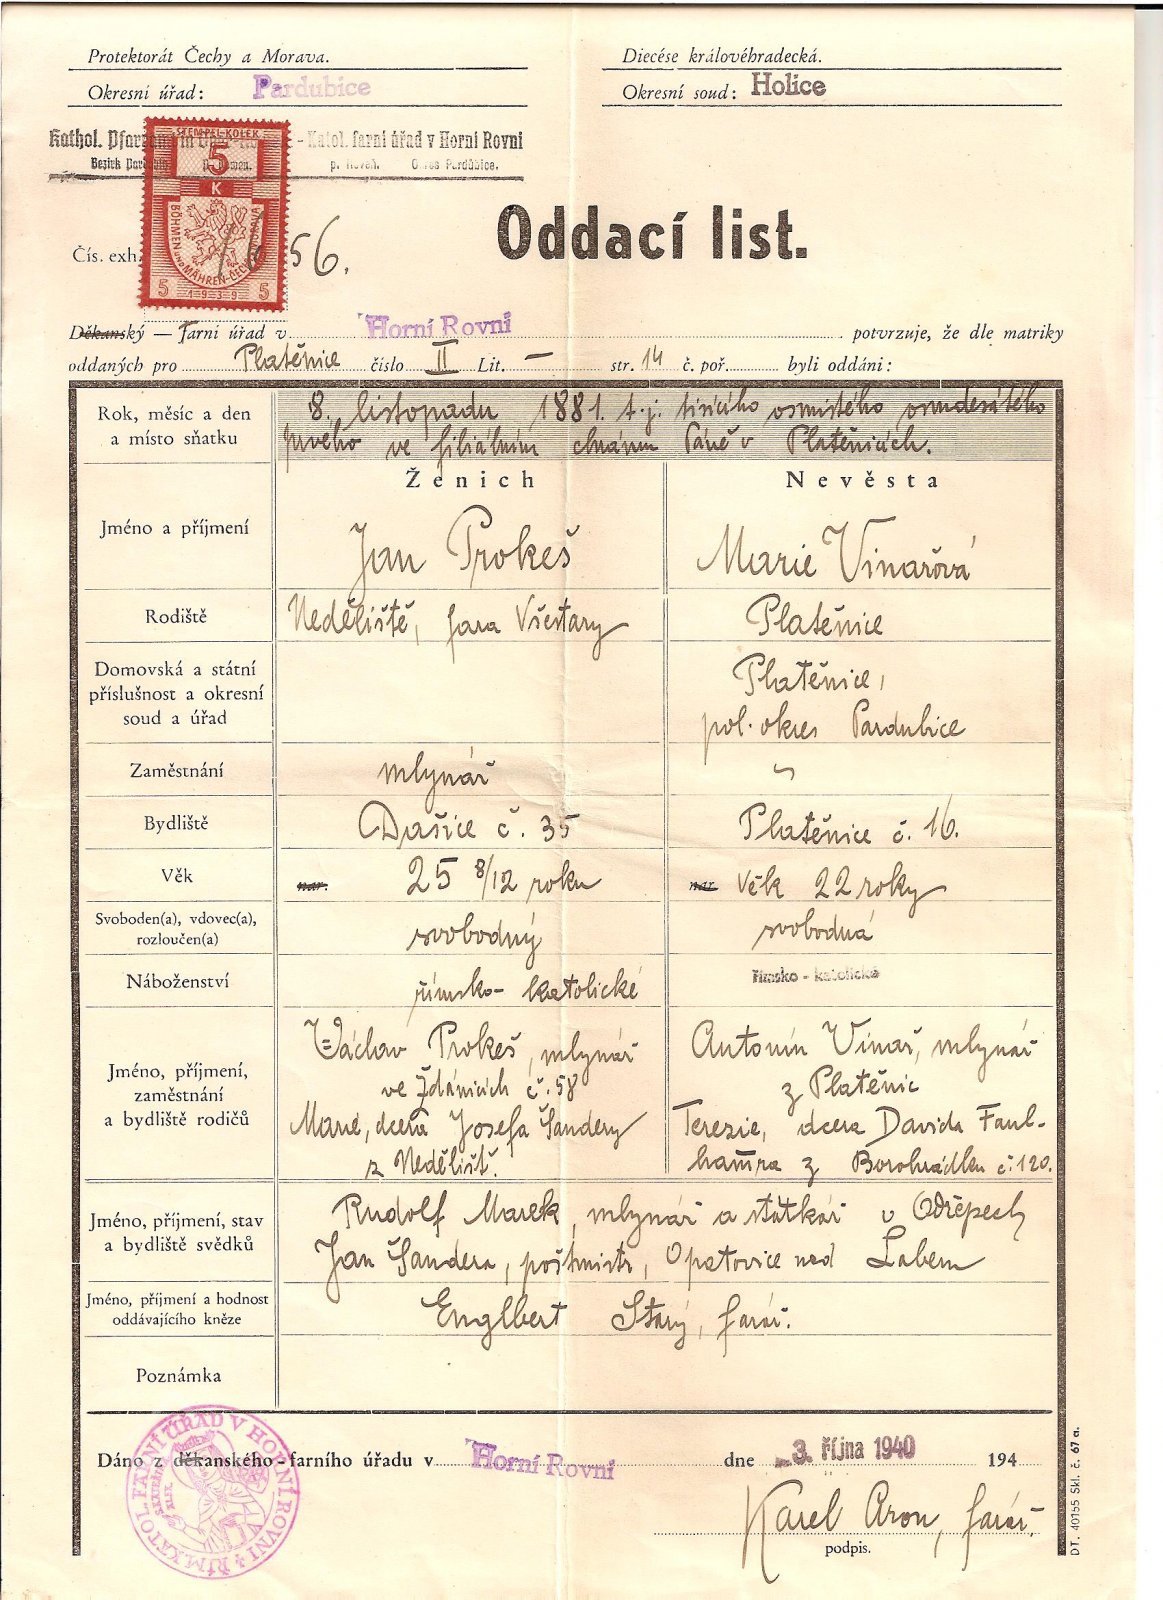 Protektorát Čechy a Morava.
Diecése královéhradecká.
Okresní úřad: Pardubice
Okresní soud: Holice
Kathol. - Katol. farní úřad v Horní Rovni
Bezirk
STEMPEL-KOLEK
5
K
BÖHMEN UND MÄHREN-ČECHY
5 1939 5
Čís. exh. 56.
Oddací list.
Děkanský — Farní úřad v Horní Rovni potvrzuje, že dle matriky
oddaných pro Platěnice číslo II Lit. — str. 14 č. poř. byli oddáni:
Rok, měsíc a den
a místo sňatku
8. listopadu 1881. t.j. tisícího osmistého osmdesátého
prvého ve filiálním chrámu Páně v Platěnicích.
Ženich
Nevěsta
Jméno a příjmení
Jan Prokeš
Marie Vinařová
Rodiště
Neděliště, fara Všestary
Platěnice
Domovská a státní
příslušnost a okresní
soud a úřad
Platěnice,
pol. okres Pardubice
Zaměstnání
mlynář
Bydliště
Dašice č. 35
Platěnice č. 16.
Věk
nar. 25 8/12 roku
nar. Věk 22 roky
Svoboden(a), vdovec(a),
rozloučen(a)
svobodný
svobodná
Náboženství
římsko-katolické
římsko-katolická
Jméno, příjmení,
zaměstnání
a bydliště rodičů
Václav Prokeš, mlynář
ve Ždánicích č. 58
Marie, dcera Josefa Šandery
z Nedělišť.
Antonín Vinař, mlynář
z Platěnic
Terezie, dcera Davida Faul-
hamra z Borohrádku č. 120.
Jméno, příjmení, stav
a bydliště svědků
Rudolf Marek, mlynář a statkář v Odřepech
Jan Šandera, poštmistr, Opatovice nad Labem
Jméno, příjmení a hodnost
oddávajícího kněze
Englbert Starý, farář.
Poznámka
Dáno z děkanského-farního úřadu v Horní Rovni dne 3. října 1940 194
ŘÍM. KATOL. FARNÍ ÚŘAD V HORNÍ ROVNI
Karel Aron, farář.
podpis.
DT. 40155 Skl. č. 67 a.